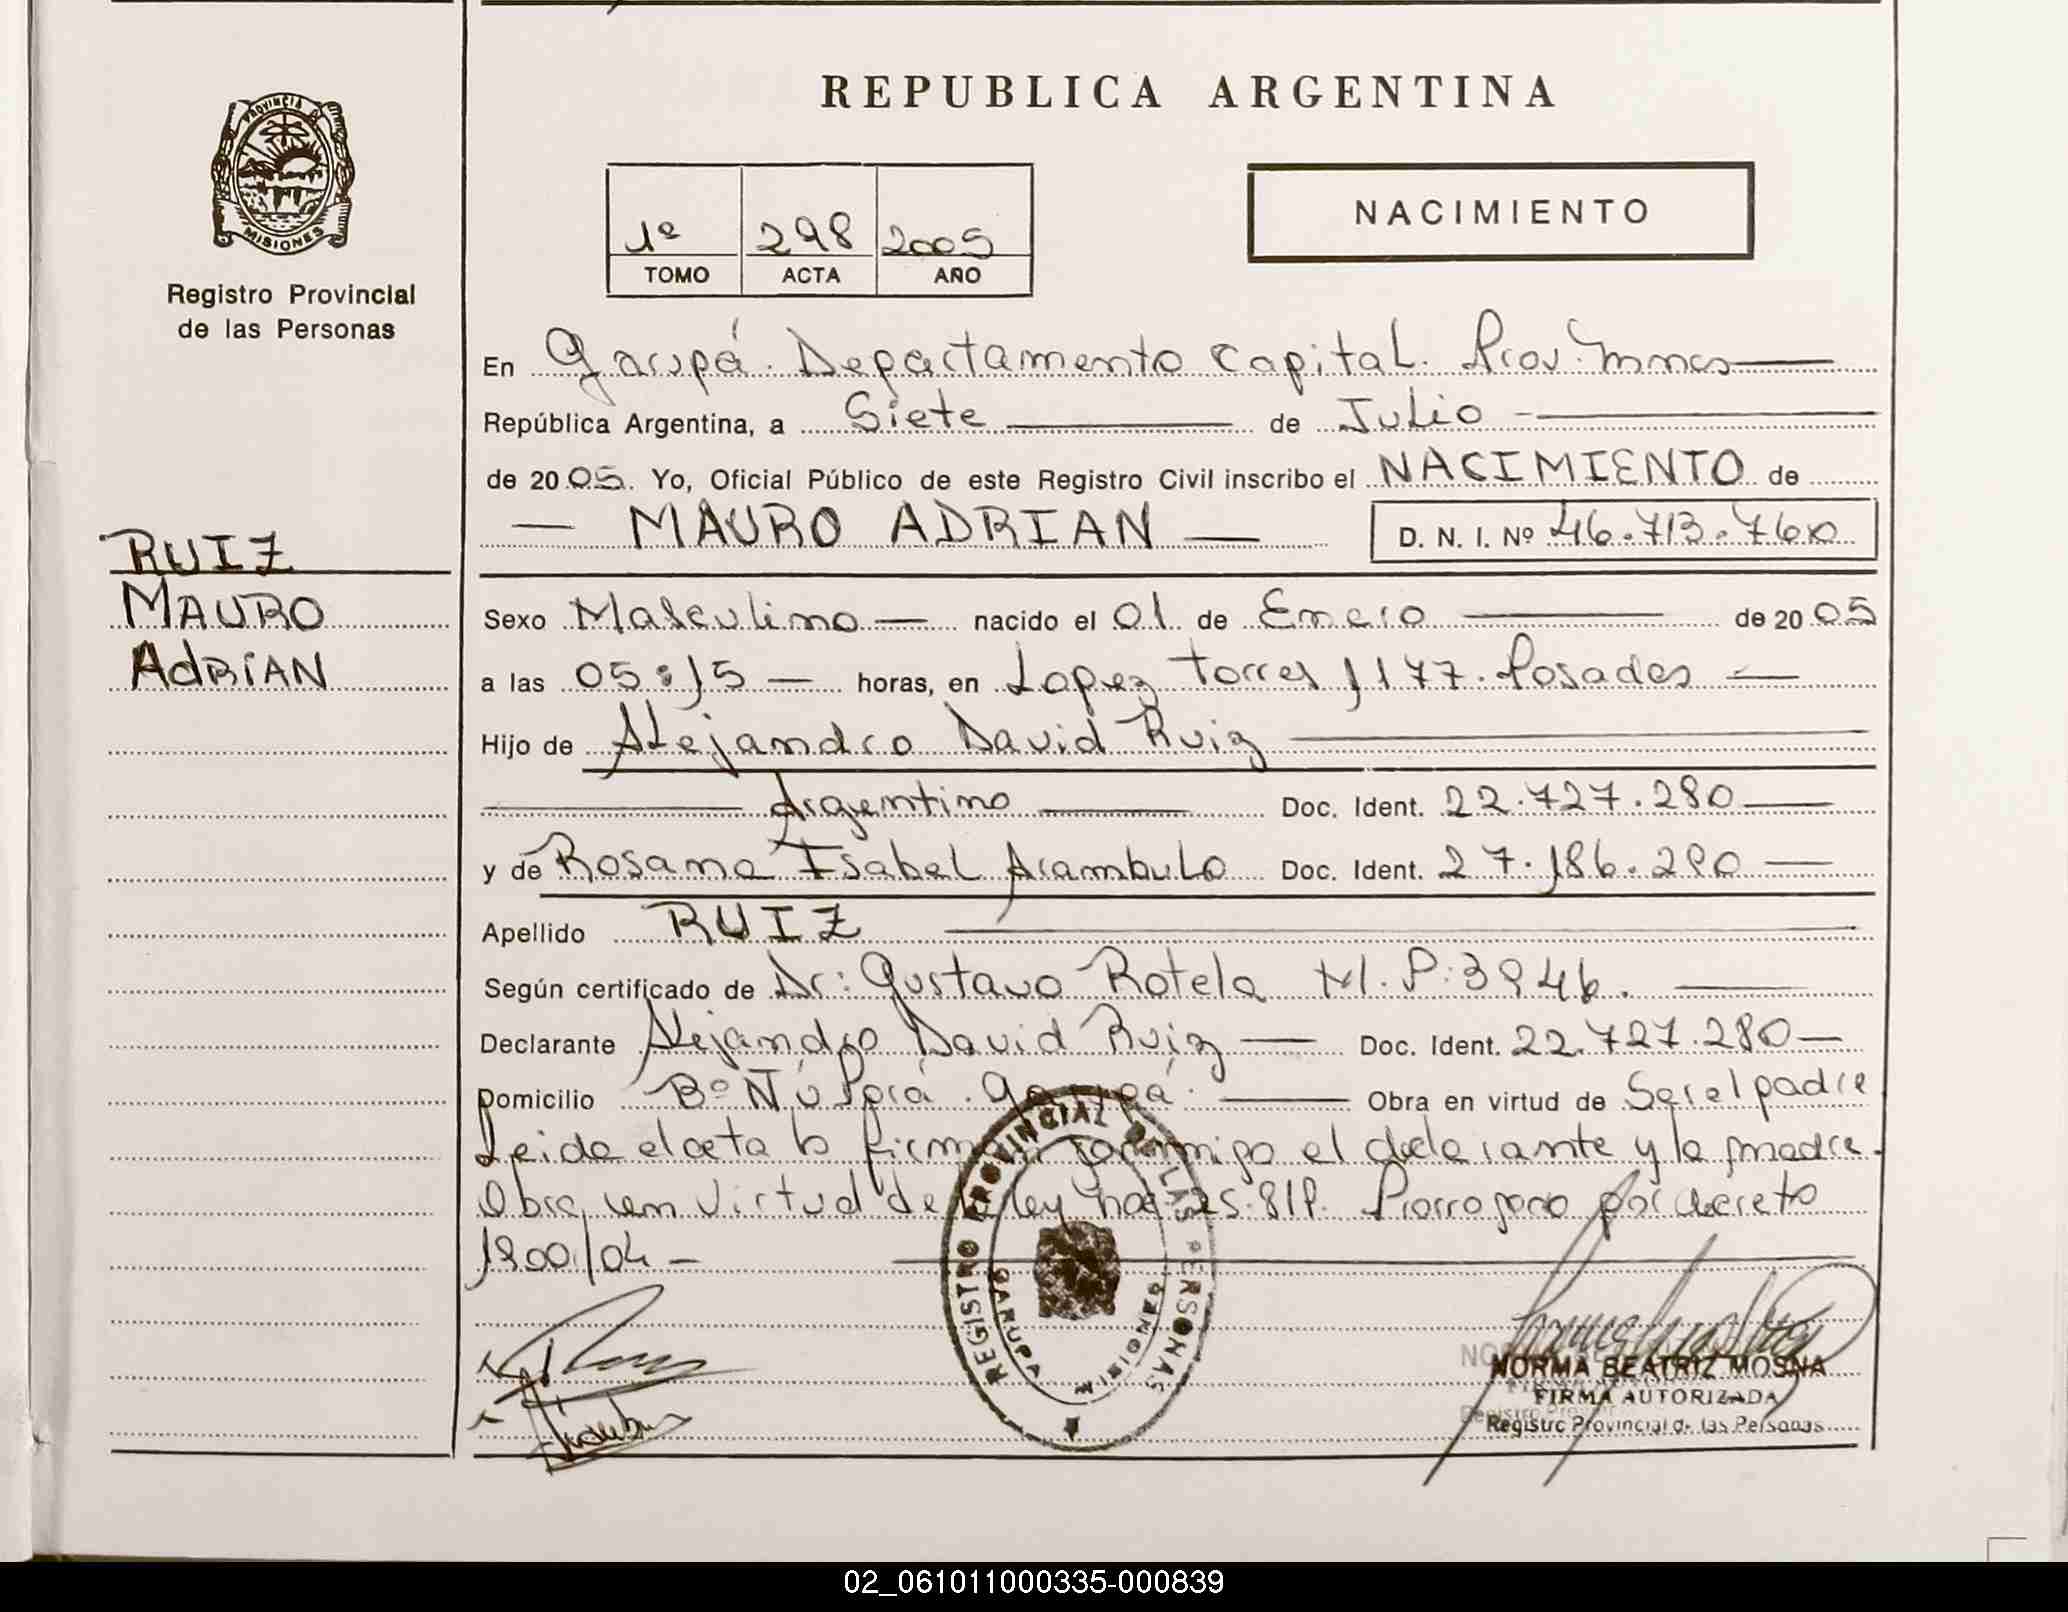 REPUBLICA ARGENTINA
PROVINCIA DE
MISIONES
Registro Provincial
de las Personas
1º 298 2005
TOMO ACTA AÑO
NACIMIENTO
En Garupá. Departamento Capital. Prov. Mnes
República Argentina, a Siete de Julio
de 2005. Yo, Oficial Público de este Registro Civil inscribo el NACIMIENTO de
MAURO ADRIAN D. N. I. Nº 46.713.760
RUIZ
MAURO
AdRIAN
Sexo Masculino nacido el 01 de Enero de 2005
a las 05:15 horas, en Lopez Torres 1177. Posadas
Hijo de Alejandro David Ruiz
Argentino Doc. Ident. 22.727.280
y de Rosana Isabel Arambulo Doc. Ident. 27.186.290
Apellido RUIZ
Según certificado de Dr: Gustavo Rotela M.P: 3946.
Declarante Alejandro David Ruiz Doc. Ident. 22.727.280
Domicilio Bº Ñu Porá. Garupá. Obra en virtud de Ser el padre
Leida el acta la firman conmigo el declarante y la madre.
Obra en virtud de la ley 25.819. Prorrogado por decreto
1900/04
REGISTRO PROVINCIAL DE LAS PERSONAS
GARUPA MISIONES
NORMA BEATRIZ MOSNA
FIRMA AUTORIZADA
Registro Provincial de las Personas
02_061011000335-000839